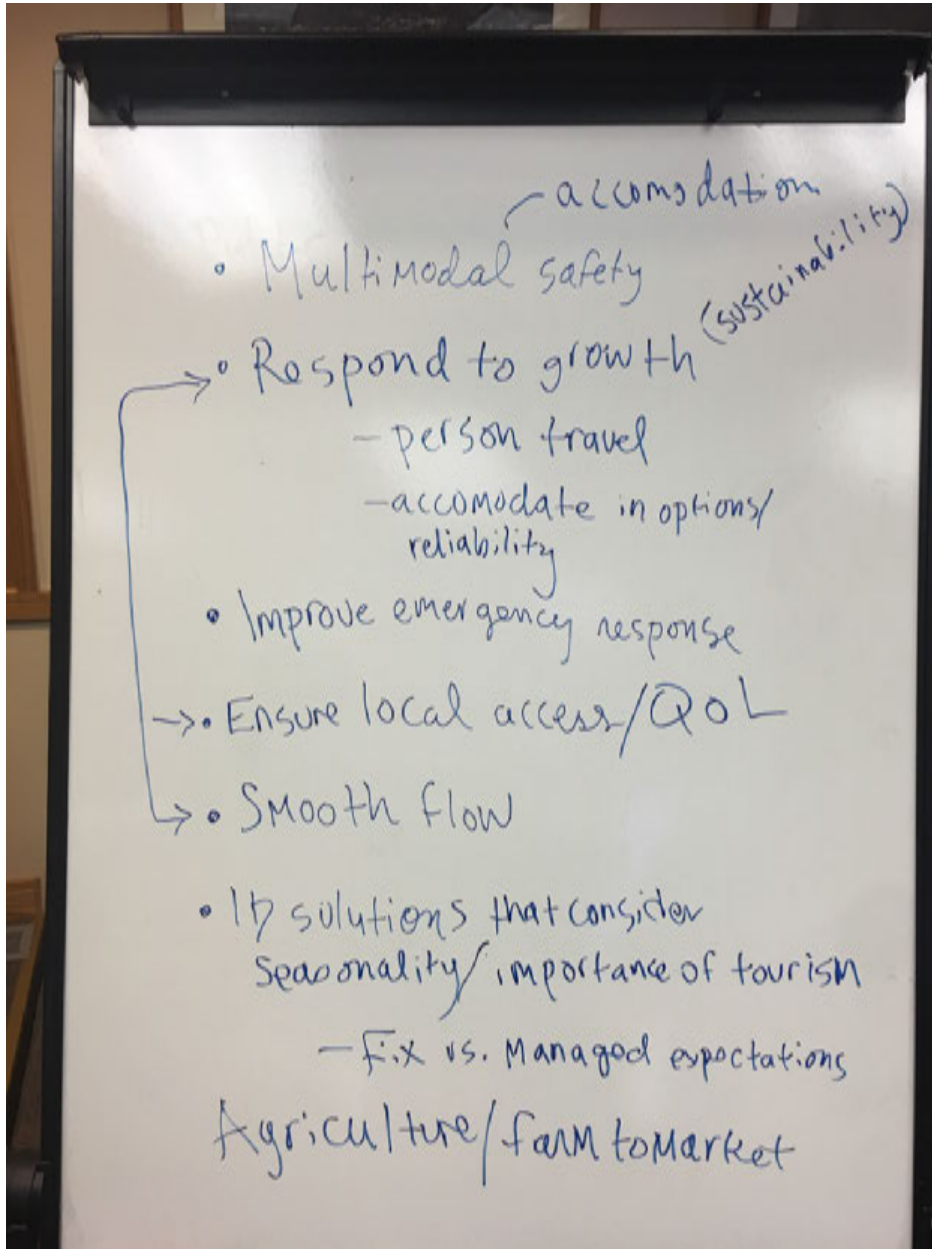 accomodation
• Multimodal safety
(sustainability)
• Respond to growth
- person travel
- accomodate in options/
reliability
• Improve emergency response
• Ensure local access/QoL
• Smooth flow
• ID solutions that consider
seasonality/importance of tourism
- Fix vs. Managed expectations
Agriculture/farm to market